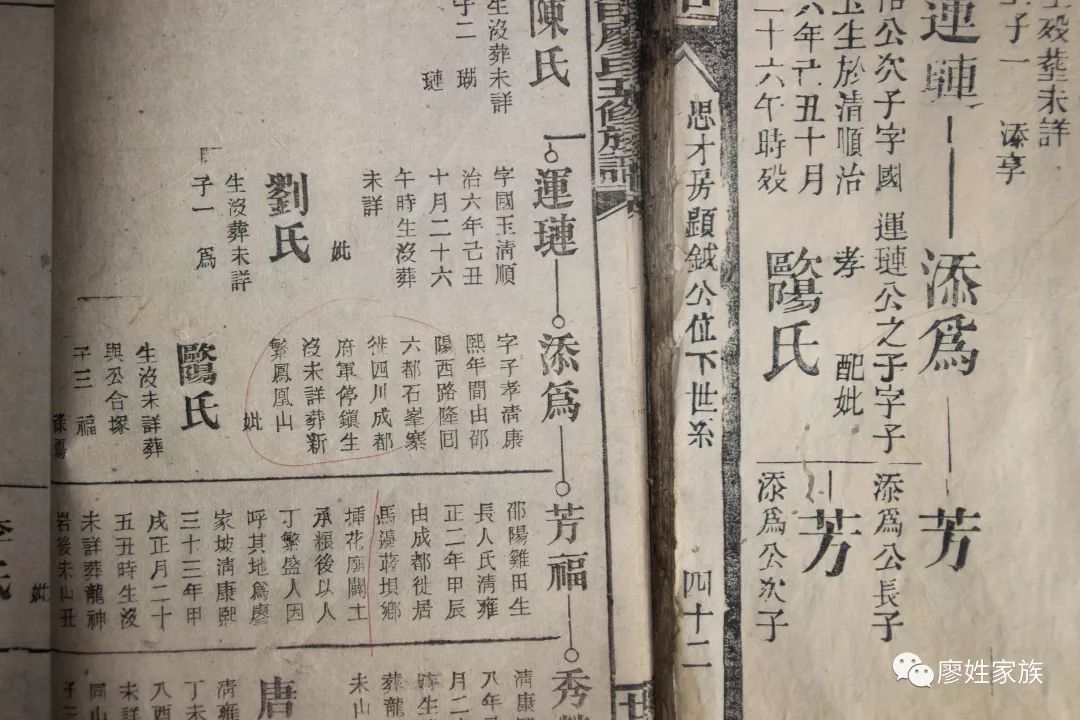 殁塟未詳
子一 添享
運璉
公次子字國
玉生於清順治
六年己丑十月
二十六午時殁
添爲
運璉公之子字子
孝 配妣
歐陽氏
芳
添爲公長子
芳
添爲公次子
思才房顕鉞公位下世系 四十二
廖氏五修族譜
陳氏
生沒葬未詳
子二 瑚
璉
運璉
字國玉清順
治六年己丑
十月二十六
午時生沒葬
未詳
妣
劉氏
生沒葬未詳
子一 爲
添爲
字子孝清康
熙年間由邵
陽西路隆回
六都石峯寨
徙四川成都
府軍停鎭生
沒未詳葬新
繁鳳凰山
妣
歐陽氏
生沒未詳葬
與公合塚
子三 福
芳福
邵陽雞田生
長人氏清雍
正二年甲辰
由成都徙居
馬邊蕞垻鄉
揷花廟關土
承糧後以人
丁繁盛人因
呼其地爲廖
家坡清康熙
三十三年甲
戌正月二十
五丑時生沒
未詳葬龍神
岩後未山丑
妣
李氏
秀
清康
年
月二
葬龍
未山
唐
清雍
丁未
八酉
未詳
同山
子二
廖姓家族